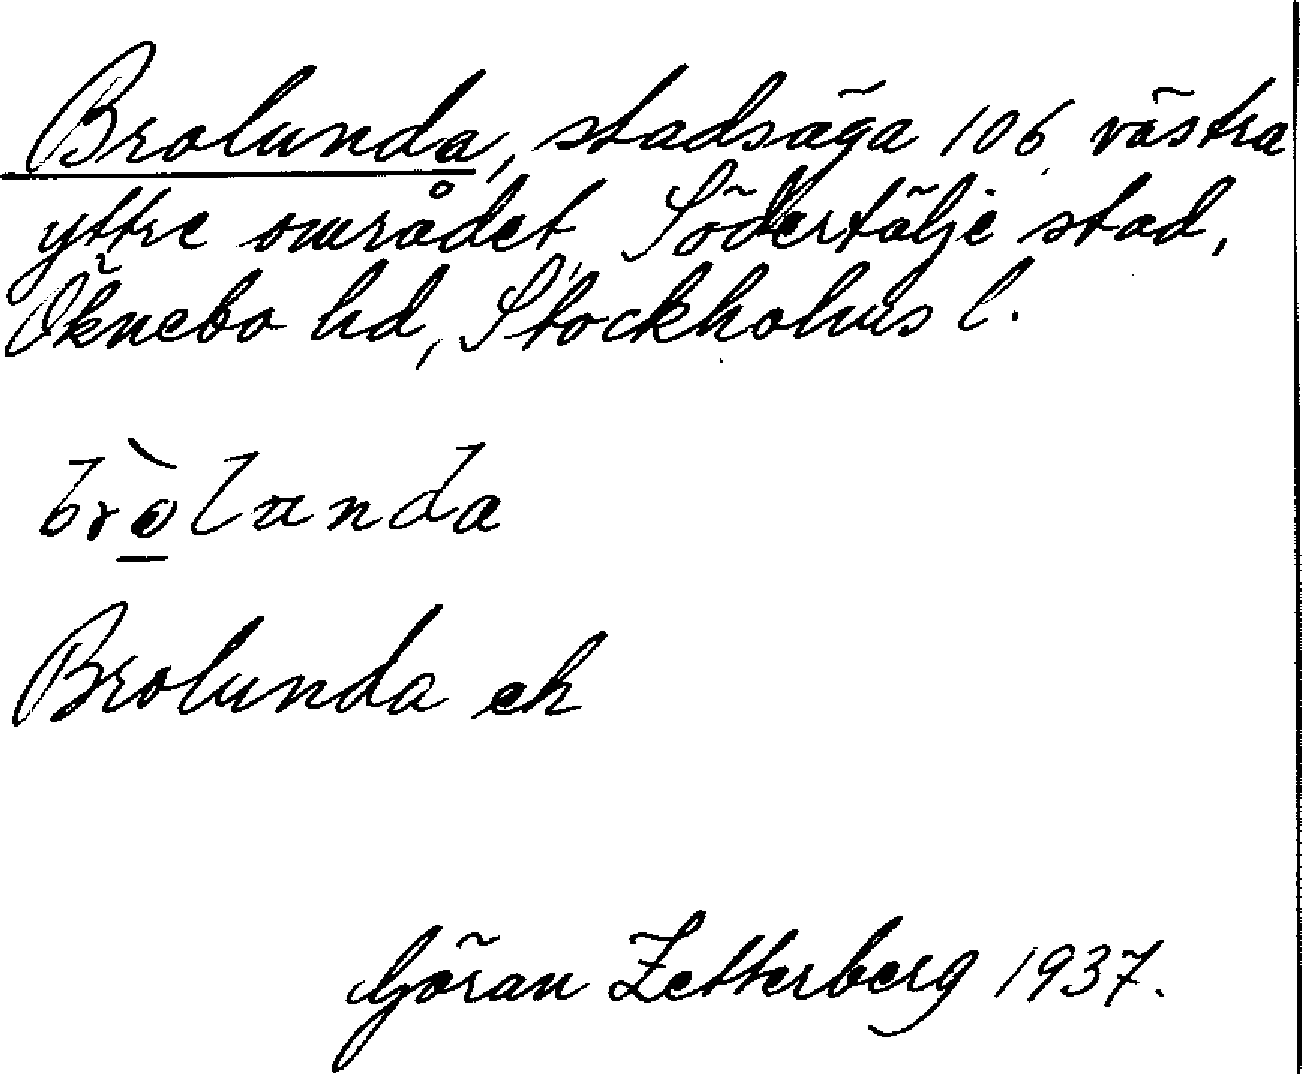 Brolunda, stadsäga 106 västra
yttre området, Södertälje stad,
Öknebo hd, Stockholms l.
bròlunda
Brolunda ek
Göran Zetterberg 1937.